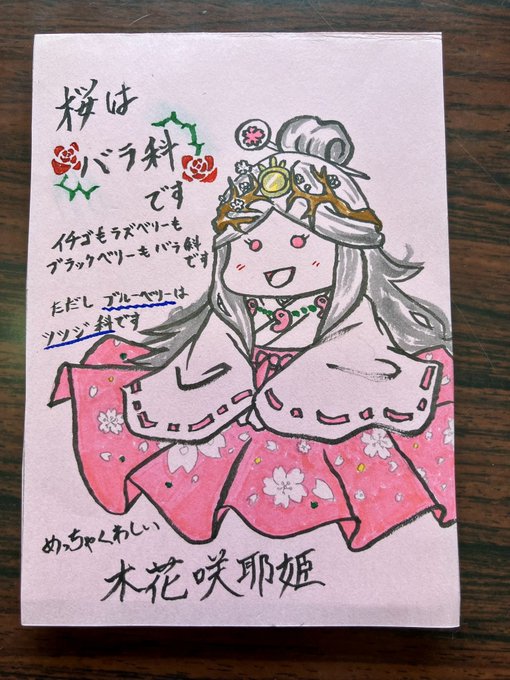 桜は
バラ科
です
イチゴもラズベリーも
ブラックベリーもバラ科
です
ただし ブルーベリーは
ツツジ科です
めっちゃくわしい
木花咲耶姫